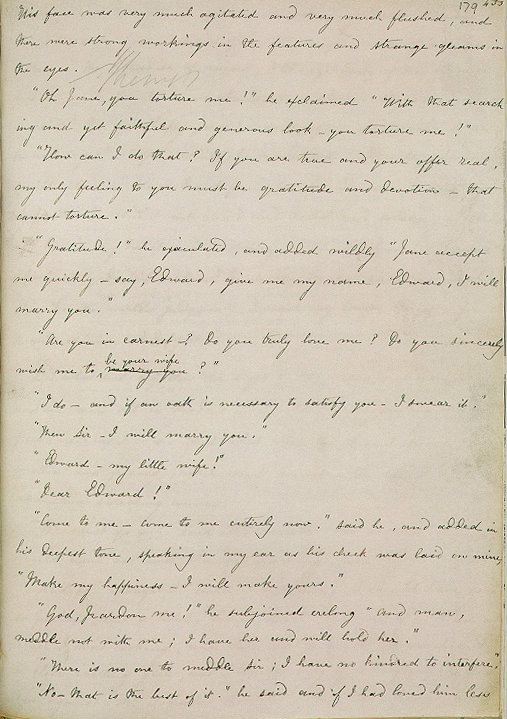 179 433
His face was very much agitated and very much flushed, and
there were strong workings in the features and strange gleams in
the eyes.
"Oh Jane, you torture me!" he exclaimed "With that search
ing and yet faithful and generous look - you torture me!"
"How can I do that? If you are true and your offer real,
my only feeling to you must be gratitude and devotion - that
cannot torture."
"Gratitude!" he ejaculated, and added wildly "Jane accept
me quickly - say, Edward, give me my name, Edward, I will
marry you."
"Are you in earnest -? Do you truly love me? Do you sincerely
be your wife
wish me to marry you?"
"I do - and if an oath is necessary to satisfy you - I swear it."
"Then Sir - I will marry you."
"Edward - my little wife!"
"Dear Edward!"
"Come to me - come to me entirely now." said he, and added in
his deepest tone, speaking in my ear as his cheek was laid on mine,
"Make my happiness - I will make yours."
"God, pardon me!" he subjoined erelong "and man,
meddle not with me; I have her and will hold her."
"There is no one to meddle Sir; I have no kindred to interfere".
"No - that is the best of it." he said and if I had loved him less